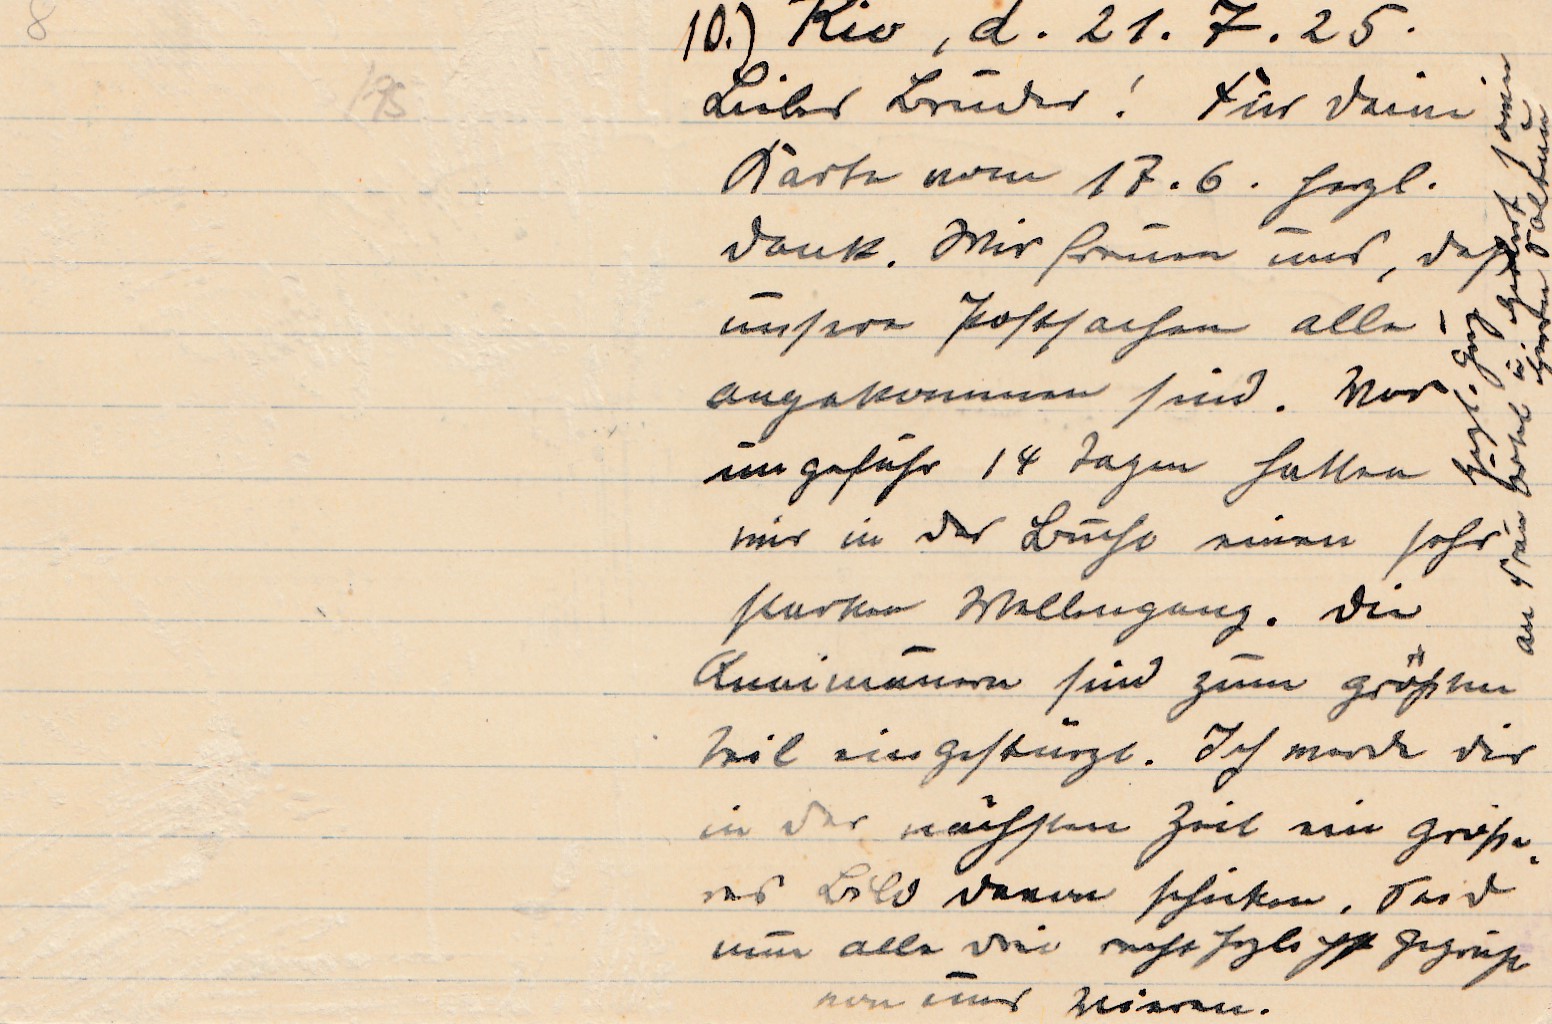 8
195
10.) Rio, d. 21. 7. 25.
Lieber Bruder! Für deine
Karte vom 17. 6. herzl.
Dank. Wir freuen uns, daß
unsere Postsachen alle
angekommen sind. Vor
ungefähr 14 Tagen hatten
wir in der Bucht einen sehr
starken Wellengang. Die
Quaimauern sind zum größten
Teil eingestürzt. Ich werde dir
in der nächsten Zeit ein größe-
res Bild davon schicken. Seid
nun alle drei recht herzlichst gegrüßt
von uns Vieren.
Herzl.
an Frau u.